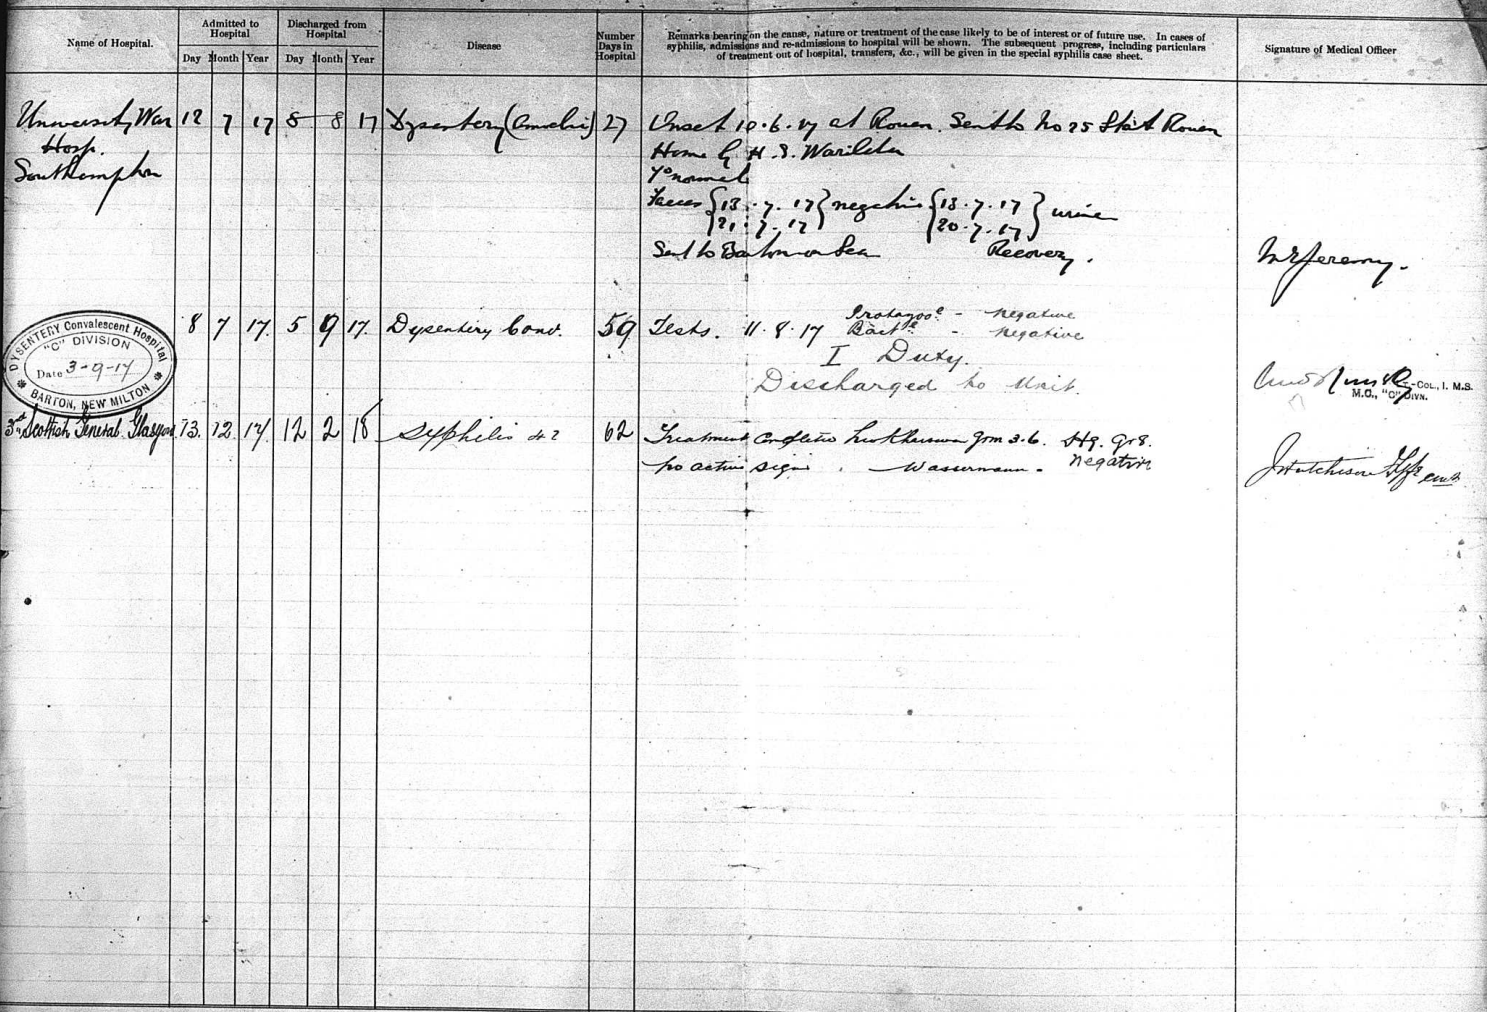 Name of Hospital.
Admitted to Hospital
Discharged from Hospital
Day Month Year Day Month Year
Disease
Number Days in Hospital
Remarks bearing on the cause, nature or treatment of the case likely to be of interest or of future use. In cases of
syphilis, admissions and re-admissions to hospital will be shown. The subsequent progress, including particulars
of treatment out of hospital, transfers, &c., will be given in the special syphilis case sheet.
Signature of Medical Officer
University War 12 7 17 8 8 17 Dysentery (Amoebic) 27 Onset 10.6.17 at Rouen. Sent to No 25 Stat Rouen
Hosp.
Southampton
Home by H.S. Warilda
T° normal
Faeces {13.7.17} negative {13.7.17} urine
{21.7.17} {20.7.17}
Sent to Barton on Sea Recovery.
Jeremy.
DYSENTERY Convalescent Hospital
"C" DIVISION
Date 3-9-17
BARTON, NEW MILTON
8 7 17. 5 9 17. Dysentery Conv. 59 Tests. 11.8.17 Protozoo - negative
Bact - negative
I Duty.
Discharged to Unit.
-COL., I. M.S.
M.O., "C" DIVN.
3rd Scottish General Glasgow 13. 12 17 12 2 18 Syphilis 62 Treatment grm 3.6. Hg. Gr 8.
No active signs. Wassermann - Negative
J Hutchison